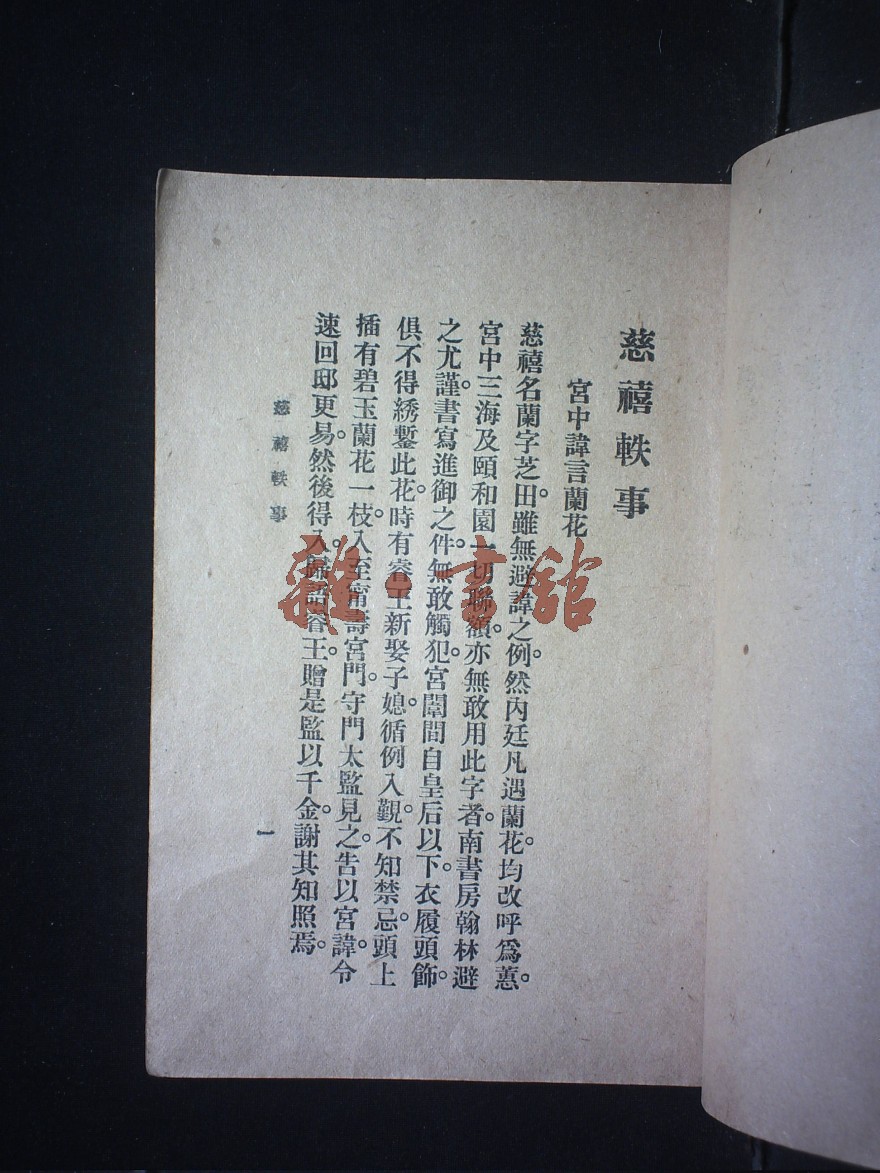 慈禧軼事
宮中諱言蘭花
慈禧名蘭字芝田。雖無避諱之例。然內廷凡遇蘭花。均改呼爲蕙。
宮中三海及頤和園一切聯額。亦無敢用此字者。南書房翰林避
之尤謹。書寫進御之件。無敢觸犯。宮闈間自皇后以下。衣履頭飾。
俱不得綉鏨此花。時有睿王新娶子媳。循例入觀。不知禁忌。頭上
插有碧玉蘭花一枝。入至甯壽宮門。守門太監見之。吿以宮諱。令
速回邸更易。然後得入。歸語睿王。贈是監以千金。謝其知照焉。
慈禧軼事
一
雜·書舘